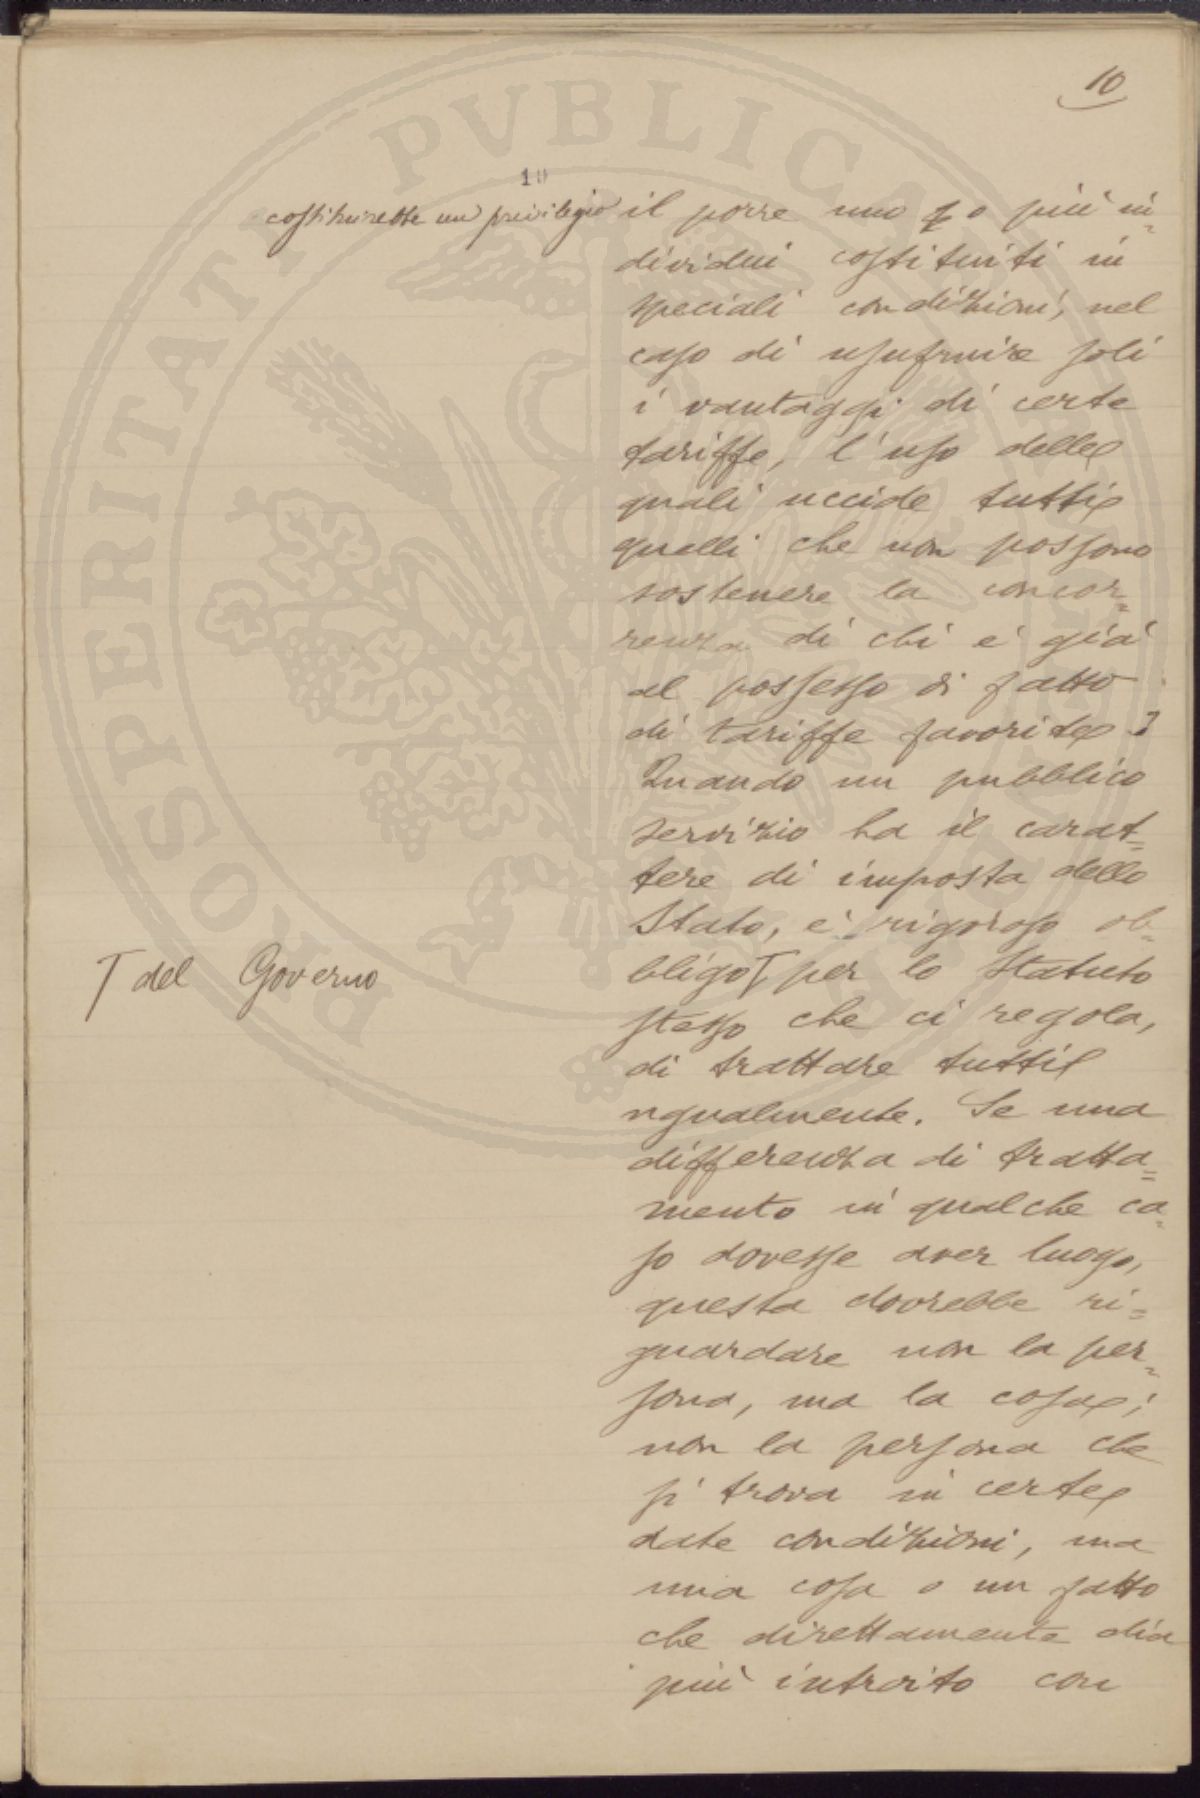 10
10
costituirebbe un privilegio il porre uno o più in=
dividui costituiti in
speciali condizioni, nel
caso di usufruire soli
i vantaggi di certe
tariffe, l'uso delle
quali uccide tutti
quelli che non possono
sostenere la concor=
renza di chi è già
al possesso di fatto
di tariffe favorite.
Quando un pubblico
servizio ha il carat=
tere di imposta dello
Stato, è rigoroso ob=
bligo T per lo Statuto
T del Governo
stesso che ci regola,
di trattare tutti
ugualmente. Se una
differenza di tratta=
mento in qualche ca=
so dovesse aver luogo,
questa dovrebbe ri=
guardare non la per=
sona, ma la cosa;
non la persona che
si trova in certe
date condizioni, ma
una cosa o un fatto
che direttamente dia
più introito con
PROSPERITATI PVBLICAE